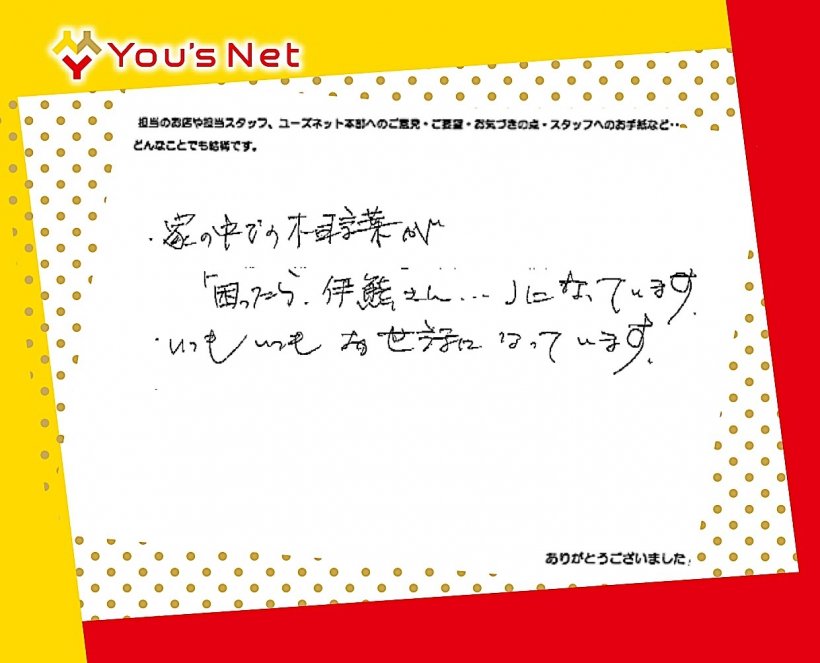 You's Net
担当のお店や担当スタッフ、ユーズネット本部へのご意見・ご要望・お気づきの点・スタッフへのお手紙など・・
どんなことでも結構です。
・家の中での合言葉が
「困ったら、伊熊さん…」になっています。
・いつもいつも お世話になっています。
ありがとうございました。